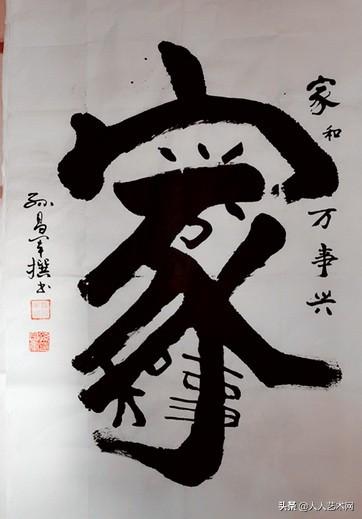 家和万事兴
家
孙昌军撰书
头条 @人人艺术网